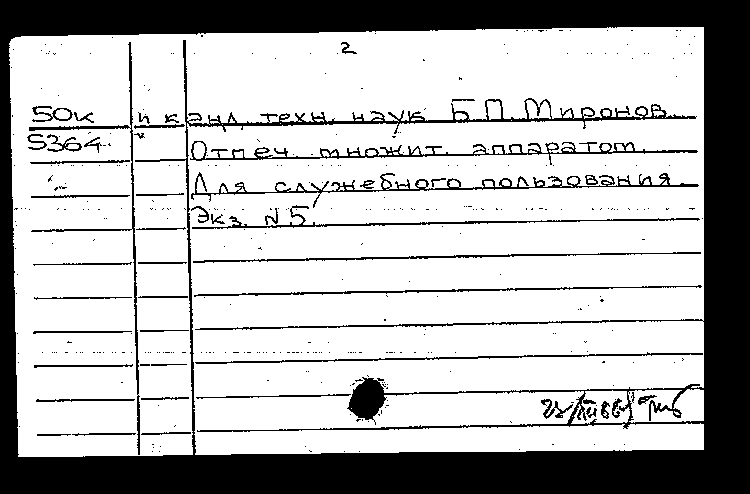 2
50к и канд. техн. наук Б.П. Миронов.
5364. Отпеч. множит. аппаратом.
Для служебного пользования.
Экз. N 5.